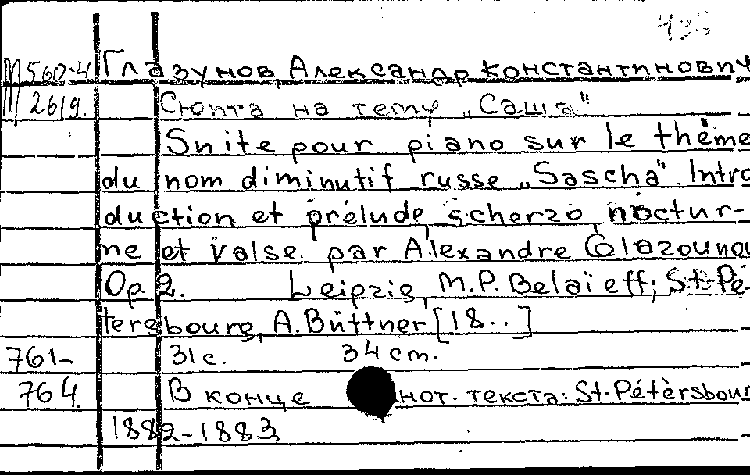 М 560-4 Глазунов, Александр Константинович
2619. Сюита на тему „Саша"
Suite pour piano sur le thème
du nom diminutif russe „Sascha" Intro
duction et prélude, scherzo, noctur-
ne et valse par Alexandre Glazounou
Op 2. Leipzig, M.P. Belaïeff; St-Pé-
tersbourg, A. Büttner [18..]
761- 31 с. 34 cm.
764. В конце нот. текста: St-Pétèrsbour
1882-1883